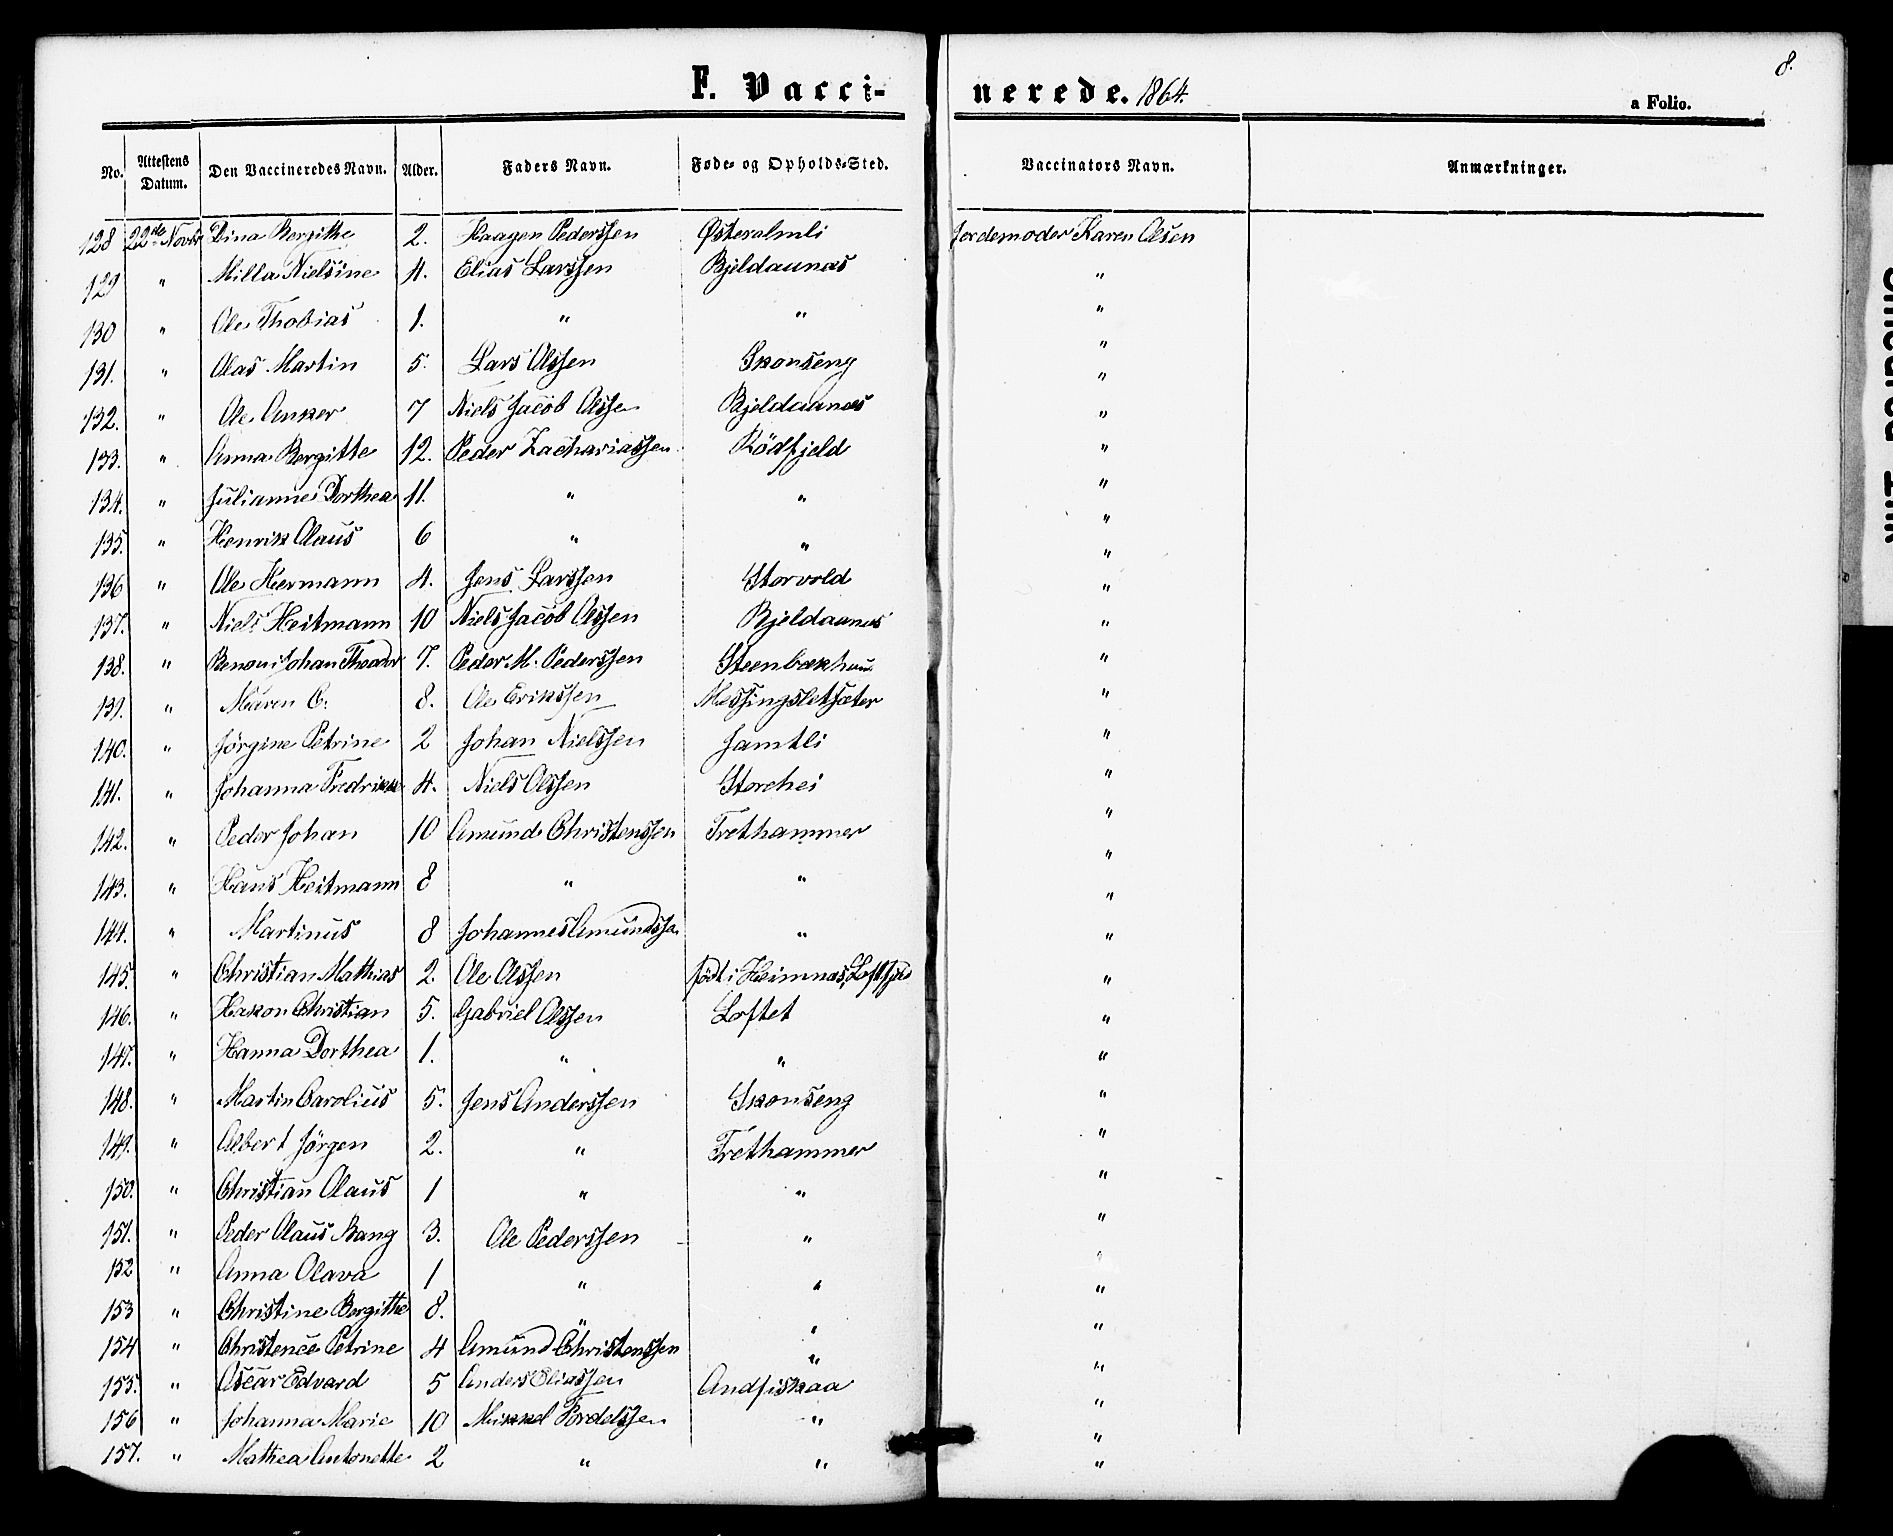 8.
F. Vacci-nerede. 1864.
a Folio.
No. Attestens Datum. Den Vaccineredes Navn. Alder. Faders Navn. Føde- og Opholds-Sted. Vaccinators Navn. Anmærkninger.
128 22de Novbr Dina Bergithe 2. Haagen Pederssen Østeralmli Jordemoder Karen Olsen
129 " Milla Nielsine 4. Elias Larssen Bjeldaanæs "
130 " Ole Thobias 1. " " "
131. " Olas Martin 5. Lars Olssen Skonseng "
132. " Ole Anker 7 Niels Jacob Olssen Bjeldaanæs "
133. " Anna Bergitte 12. Peder Zachariassen Rödfjeld "
134. " Julianne Dorthea 11. " " "
135. " Henrik Olaus 6 " " "
136 " Ole Hermann 4. Jens Larssen Storvold "
137. " Niels Heitmann 10 Niels Jacob Olssen Bjeldaanæs "
138. " Benoni Johan Theodor 7. Peder M. Pederssen Steenbækhau "
139. " Maren E. 8. Ole Erikssen Messingsletsæter "
140. " Jørgine Petrine 2 Johan Nielssen Jamtli "
141. " Johanna Fredrikke 4. Niels Olssen Storhei "
142. " Peder Johan 10 Amund Christenssen Trethammer "
143. " Hans Heitmann 8 " " "
144. " Martinus 8 Johannes Amundssen " "
145. " Christian Mathias 2. Ole Olssen født i Heimnæs, Loftfjeld "
146. " Hakon Christian 5. Gabriel Olssen Loftet "
147. " Hanna Dorthea 1. " " "
148. " Martin Carolius 5. Jens Anderssen Skonseng "
149. " Albert Jörgen 2. " Trethammer "
150. " Christian Olaus 1 " " "
151. " Peder Olaus Bang 3. Ole Pederssen " "
152 " Anna Olava 1 " " "
153 " Christine Bergithe 8. " " "
154 " Christence Petrine 4 Amund Christenssen " "
155. " Oscar Edvard 5 Anders Eliassen Andfiskaa "
156 " Johanna Marie 10 Mikkel Pordelssen " "
157. " Mathea Antonette 2 " " "